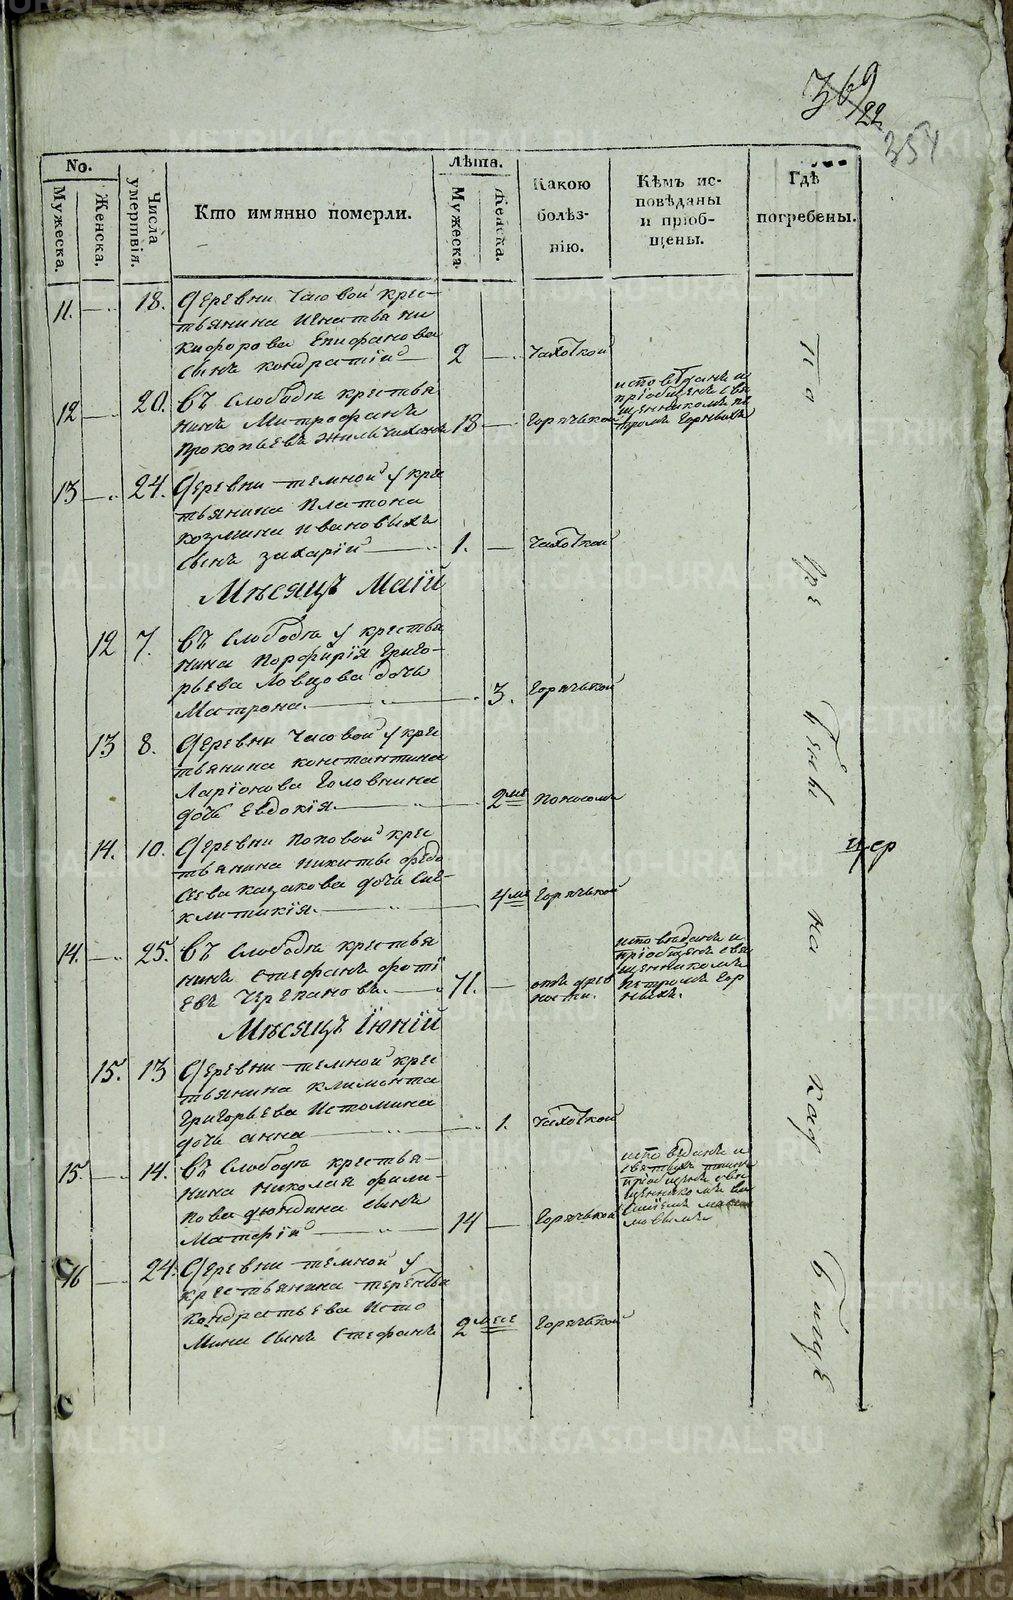 369
22
354
No.
Мужеска.
Женска.
Числа умертвія.
Кто имянно померли.
Лѣта.
Мужеска.
Женска.
Какою болѣз-
нію.
Кѣмъ ис-
повѣданы
и пріоб-
щены.
Гдѣ
погребены.
11. 18. Деревни Часовой крес-
тьянина Игнатья Ни
кифорова Епифанова
сынъ Кондратій 2 Чахоткой
12 20. Въ Слободѣ крестья
нинъ Митрофанъ
Прокопьевъ 18 Горячькой
исповѣданъ и
пріобщенъ свя
щенникомъ Пе
тромъ Горныхъ
13 24. Деревни Темной у кре
тьянина Платона
Козмина Ивановыхъ
сынъ Захарій 1. Чахоткой
Мѣсяцъ Маій
12 7. Въ Слободѣ у крестья
нина Порфирія Григо-
рьева Ловцова дочь
Матрона. 3. Горячькой
13 8. Деревни Часовой у кре
тьянина Константина
Ларіонова Головнина
дочь Евдокія. 2 ме Поносомъ
14. 10. Деревни Поповой крес
тьянина Никиты Федо
сѣева Казакова дочь Син-
клитикія. 4 ме Горячькой
14. 25. Въ Слободѣ крестья
нинъ Стефанъ Фоті
евъ Черепановъ. 71. отъ древ
ности.
исповѣданъ и
пріобщенъ свя
щенникомъ
Петромъ Гор
ныхъ.
Мѣсяцъ Іюній
15. 13 Деревни Темной крес
тьянина Климента
Григорьева Истомина
дочь Анна 1. Чахоткой
15. 14. Въ Слободѣ крестья-
нина Николая Фили-
пова Дюндина сынъ
Матфій 14 Горячькой
исповѣданъ и
святыхъ таинъ
пріобщенъ свя
щенникомъ Ва
силіемъ Макси
мовымъ
16 24. Деревни Темной у
крестьянина Терентья
Кондратьева Исто
мина сынъ Стефанъ 2 месе Горячькой
Погребены на кладбищѣ
цер
METRIKI.GASO-URAL.RU